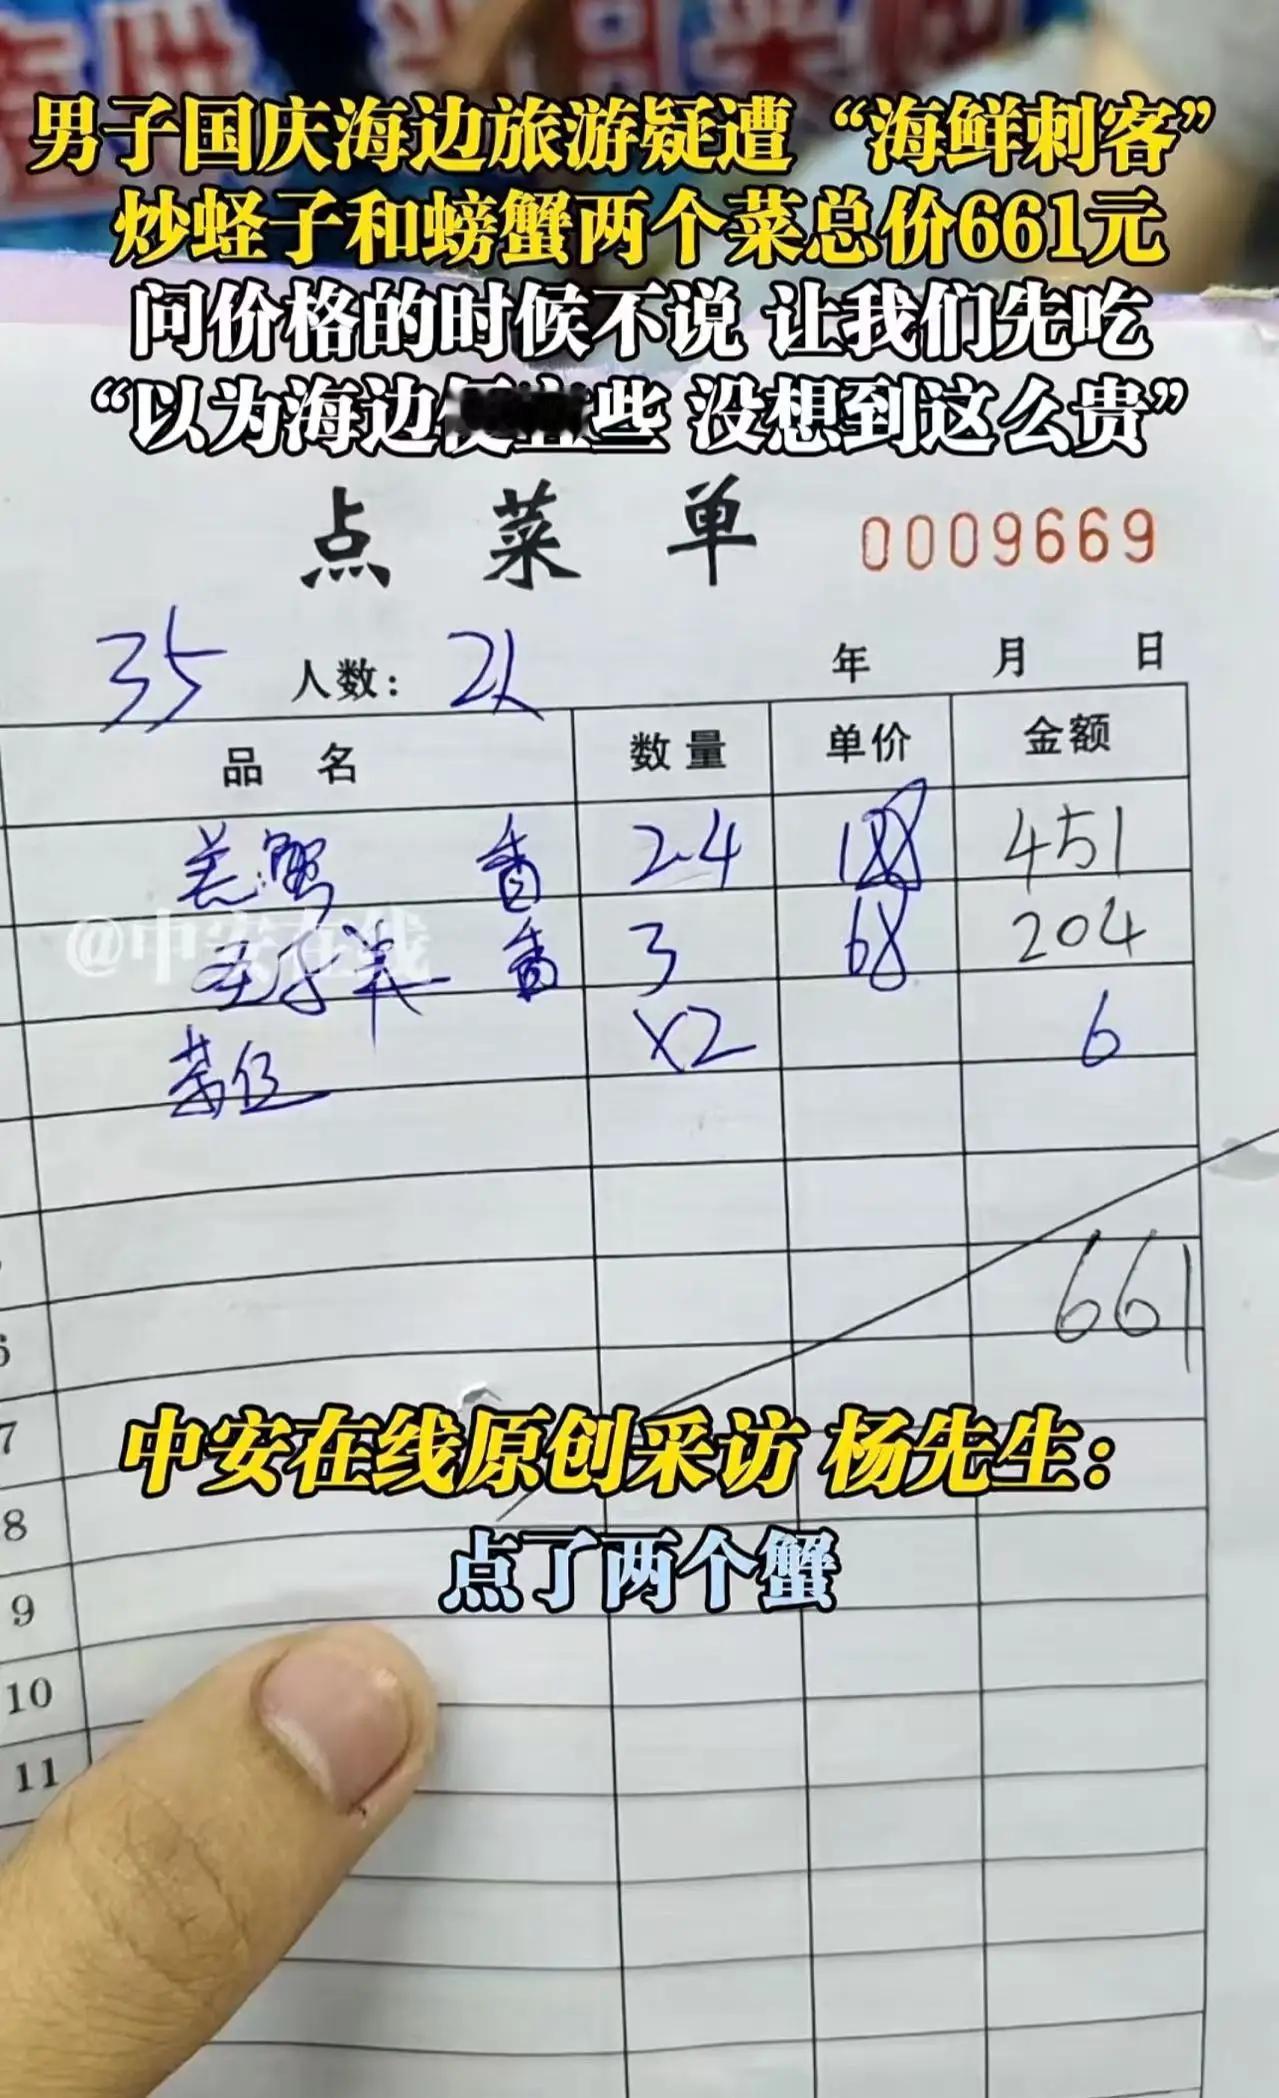 男子国庆海边旅游疑遭“海鲜刺客”
炒蛏子和螃蟹两个菜总价661元
问价格的时候不说 让我们先吃
“以为海边便宜些 没想到这么贵”
点菜单 0009669
35 人数: 2人 年 月 日
品名 数量 单价 金额
羔蟹 香 2.4 188 451
香 3 68 204
茶位 X2 6
@中安在线
661
6
7
中安在线原创采访 杨先生：
8
点了两个蟹
9
10
11